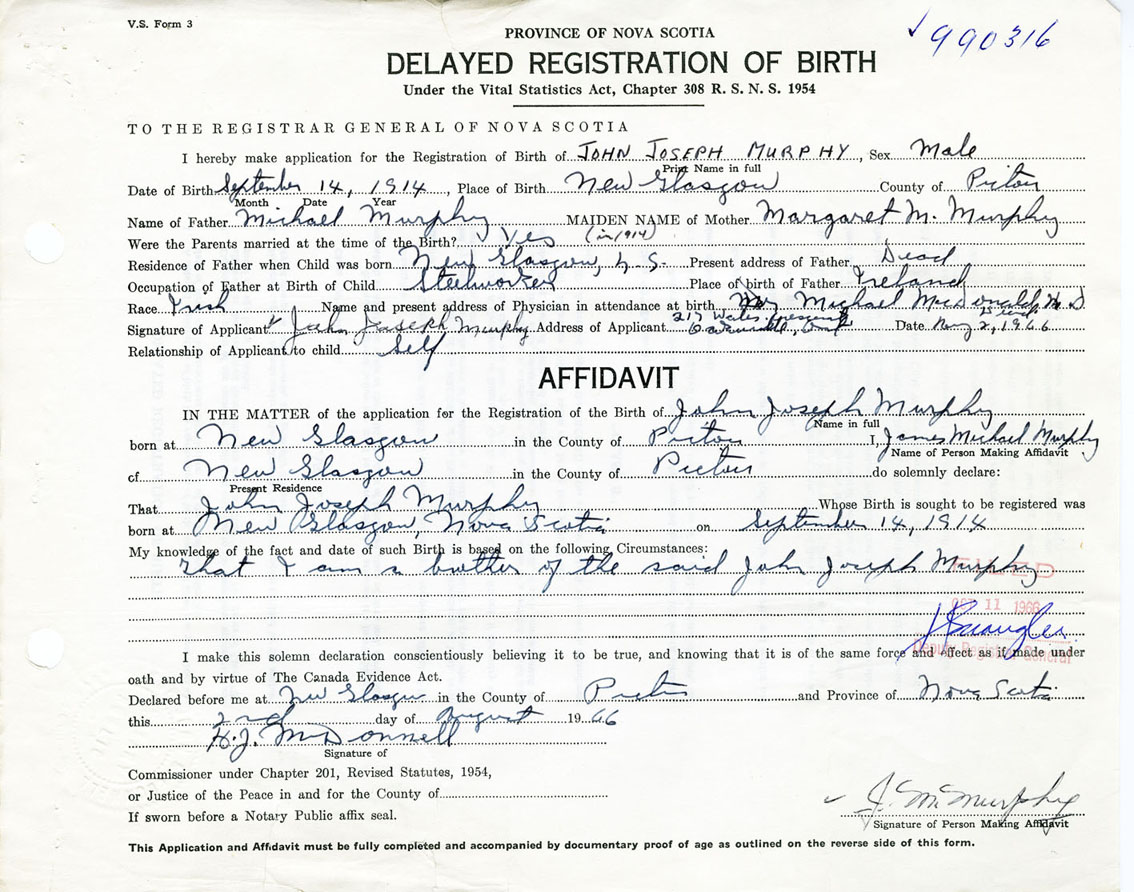 V.S. Form 3
990316
PROVINCE OF NOVA SCOTIA
DELAYED REGISTRATION OF BIRTH
Under the Vital Statistics Act, Chapter 308 R. S. N. S. 1954
TO THE REGISTRAR GENERAL OF NOVA SCOTIA
I hereby make application for the Registration of Birth of JOHN JOSEPH MURPHY, Sex Male
Print Name in full
Date of Birth September 14, 1914, Place of Birth New Glasgow County of Pictou
Month Date Year
Name of Father Michael Murphy MAIDEN NAME of Mother Margaret M. Murphy
Were the Parents married at the time of the Birth? Yes (in 1914)
Residence of Father when Child was born New Glasgow, N.S. Present address of Father Dead
Occupation of Father at Birth of Child Steelworker Place of birth of Father Ireland
Race Irish Name and present address of Physician in attendance at birth Michael MacDonald M.D
Signature of Applicant John Joseph Murphy Address of Applicant 217 Wales Crescent Date Aug 2, 1966
Relationship of Applicant to child Self
AFFIDAVIT
IN THE MATTER of the application for the Registration of the Birth of John Joseph Murphy
Name in full
born at New Glasgow in the County of Pictou I, James Michael Murphy
Name of Person Making Affidavit
of New Glasgow in the County of Pictou do solemnly declare:
Present Residence
That John Joseph Murphy Whose Birth is sought to be registered was
born at New Glasgow, Nova Scotia on September 14, 1914
My knowledge of the fact and date of such Birth is based on the following Circumstances:
that I am a brother of the said John Joseph Murphy
FILED
OCT 11 1966
Deputy Registrar General
I make this solemn declaration conscientiously believing it to be true, and knowing that it is of the same force and effect as if made under
oath and by virtue of The Canada Evidence Act.
Declared before me at New Glasgow in the County of Pictou and Province of Nova Scotia
this 2nd day of August 1966
H.J. McDonnell
Signature of
Commissioner under Chapter 201, Revised Statutes, 1954,
or Justice of the Peace in and for the County of
If sworn before a Notary Public affix seal.
J. M. Murphy
Signature of Person Making Affidavit
This Application and Affidavit must be fully completed and accompanied by documentary proof of age as outlined on the reverse side of this form.